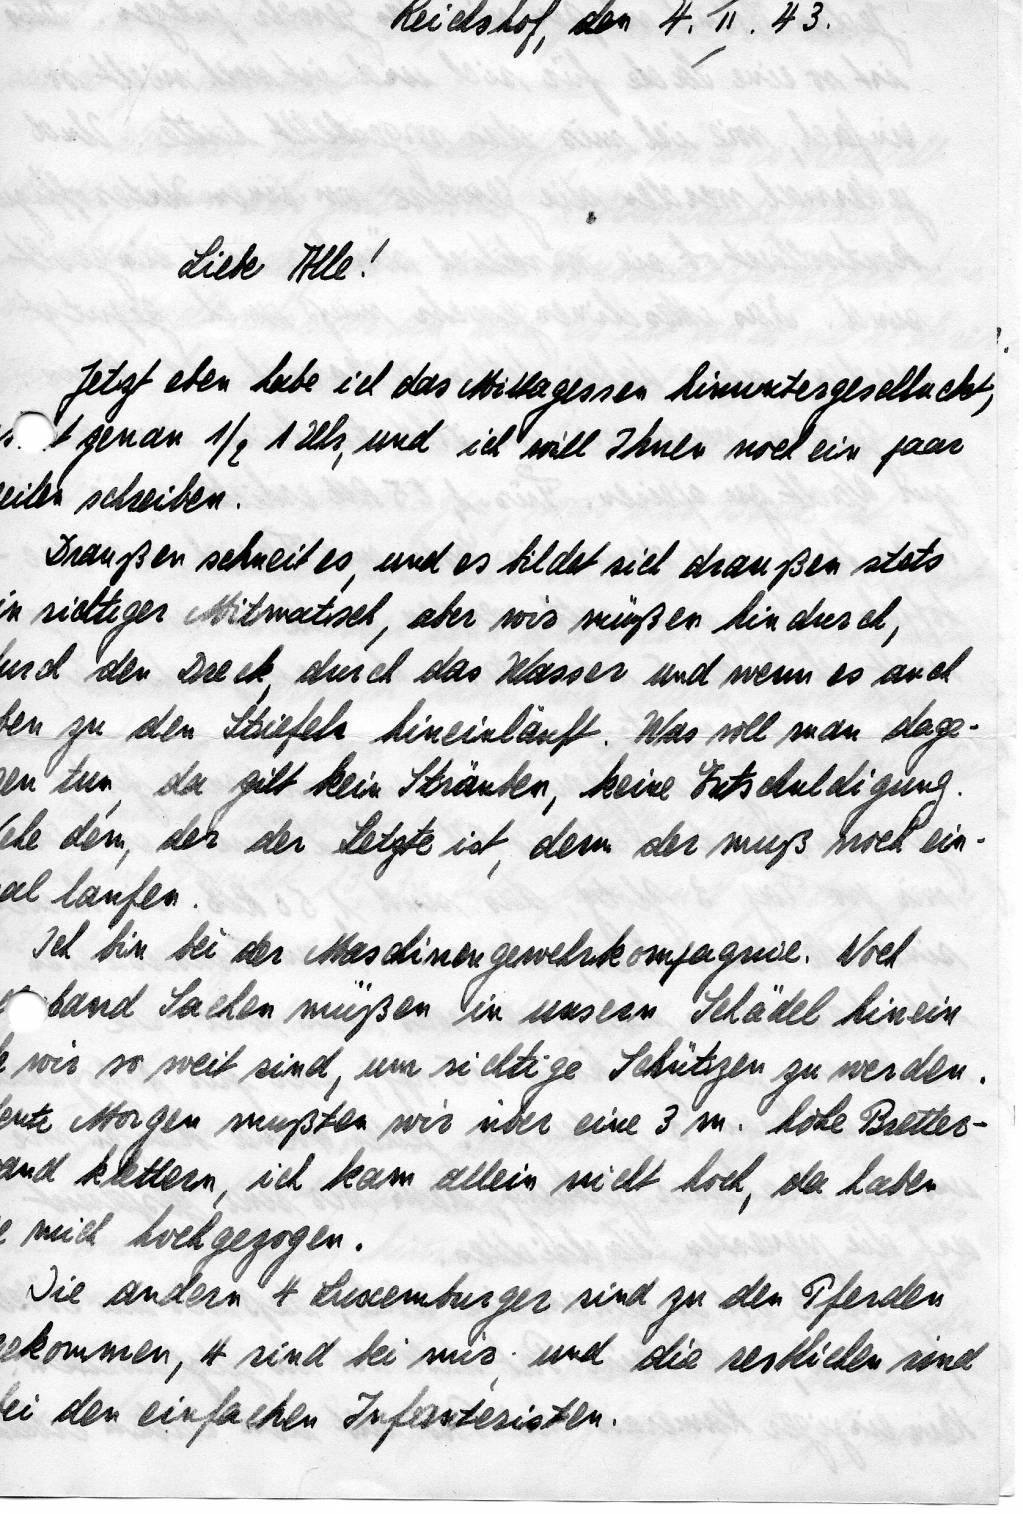 Reichshof, den 4. II. 43.
Liebe Alle!
Jetzt eben habe ich das Mittagessen hinuntergeschluckt,
t genau 1/2 1 Uhr, und ich will Ihnen noch ein paar
eilen schreiben.
Draußen schneit es, und es bildet sich draußen stets
in richtiger Mitmatsch, aber wir müßen hindurch,
urch den Dreck, durch das Wasser und wenn es auch
ben zu den Stiefeln hineinläuft. Was soll man dage-
gen tun, da gilt kein Sträuben, keine Entschuldigung.
ehe dem, der der Letzte ist, denn der muß noch ein-
al laufen.
Ich bin bei der Maschinengewehrkompagnie. Noch
band Sachen müßen in unsern Schädel hinein
wir so weit sind, um richtige Schützen zu werden.
eute Morgen mußten wir über eine 3 m. hohe Bretter-
and klettern, ich kam allein nicht hoch, da haben
e mich hochgezogen.
Die andern 4 Luxemburger sind zu den Pferden
gekommen, 4 sind bei mir, und die restlichen sind
bei den einfachen Infanteristen.